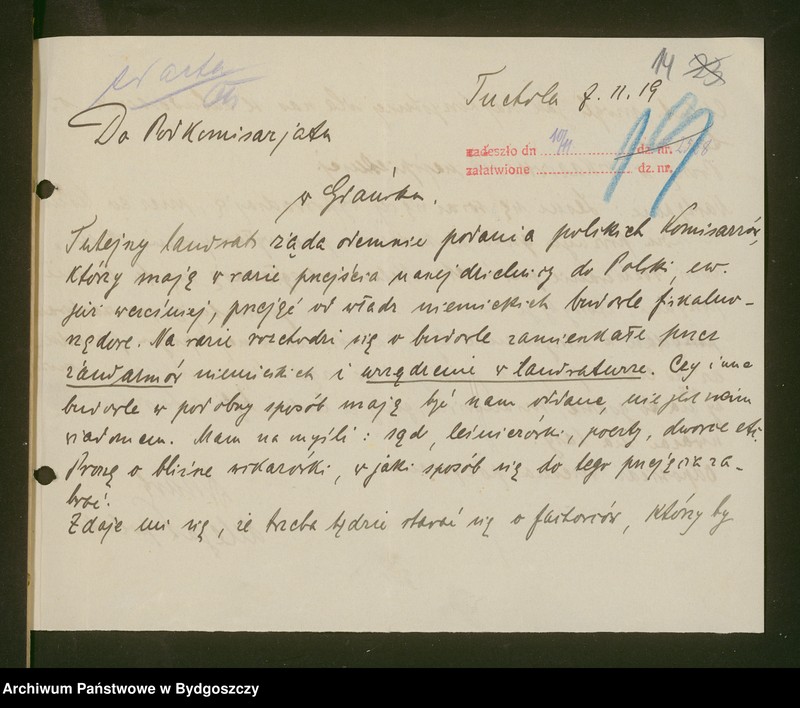 14 23
Tuchola 7. 11. 19
Do Podkomisarjatu
zadeszło dn 10/11 dz. nr.
załatwione dz. nr.
19
w Gdańsku.
Tutejszy landrat żąda odemnie podania polskich Komisarzów,
którzy mają w razie przejścia naszej dzielnicy do Polski, ew.
już wcześniej, przejąć od władz niemieckich budowle fiskalno-
rządowe. Na razie rozchodzi się o budowle zamieszkałe przez
żandarmów niemieckich i urządzenie w landraturze. Czy inne
budowle w podobny sposób mają być nam oddane, nie jest nam
wiadomem. Mam na myśli: sąd, leśniczówki, poczty, dworce etc.
Proszę o bliższe wskazówki, w jaki sposób się do tego przejęcia za-
brać.
Zdaje mi się, że trzeba będzie starać się o fachowców, którzy by
Archiwum Państwowe w Bydgoszczy